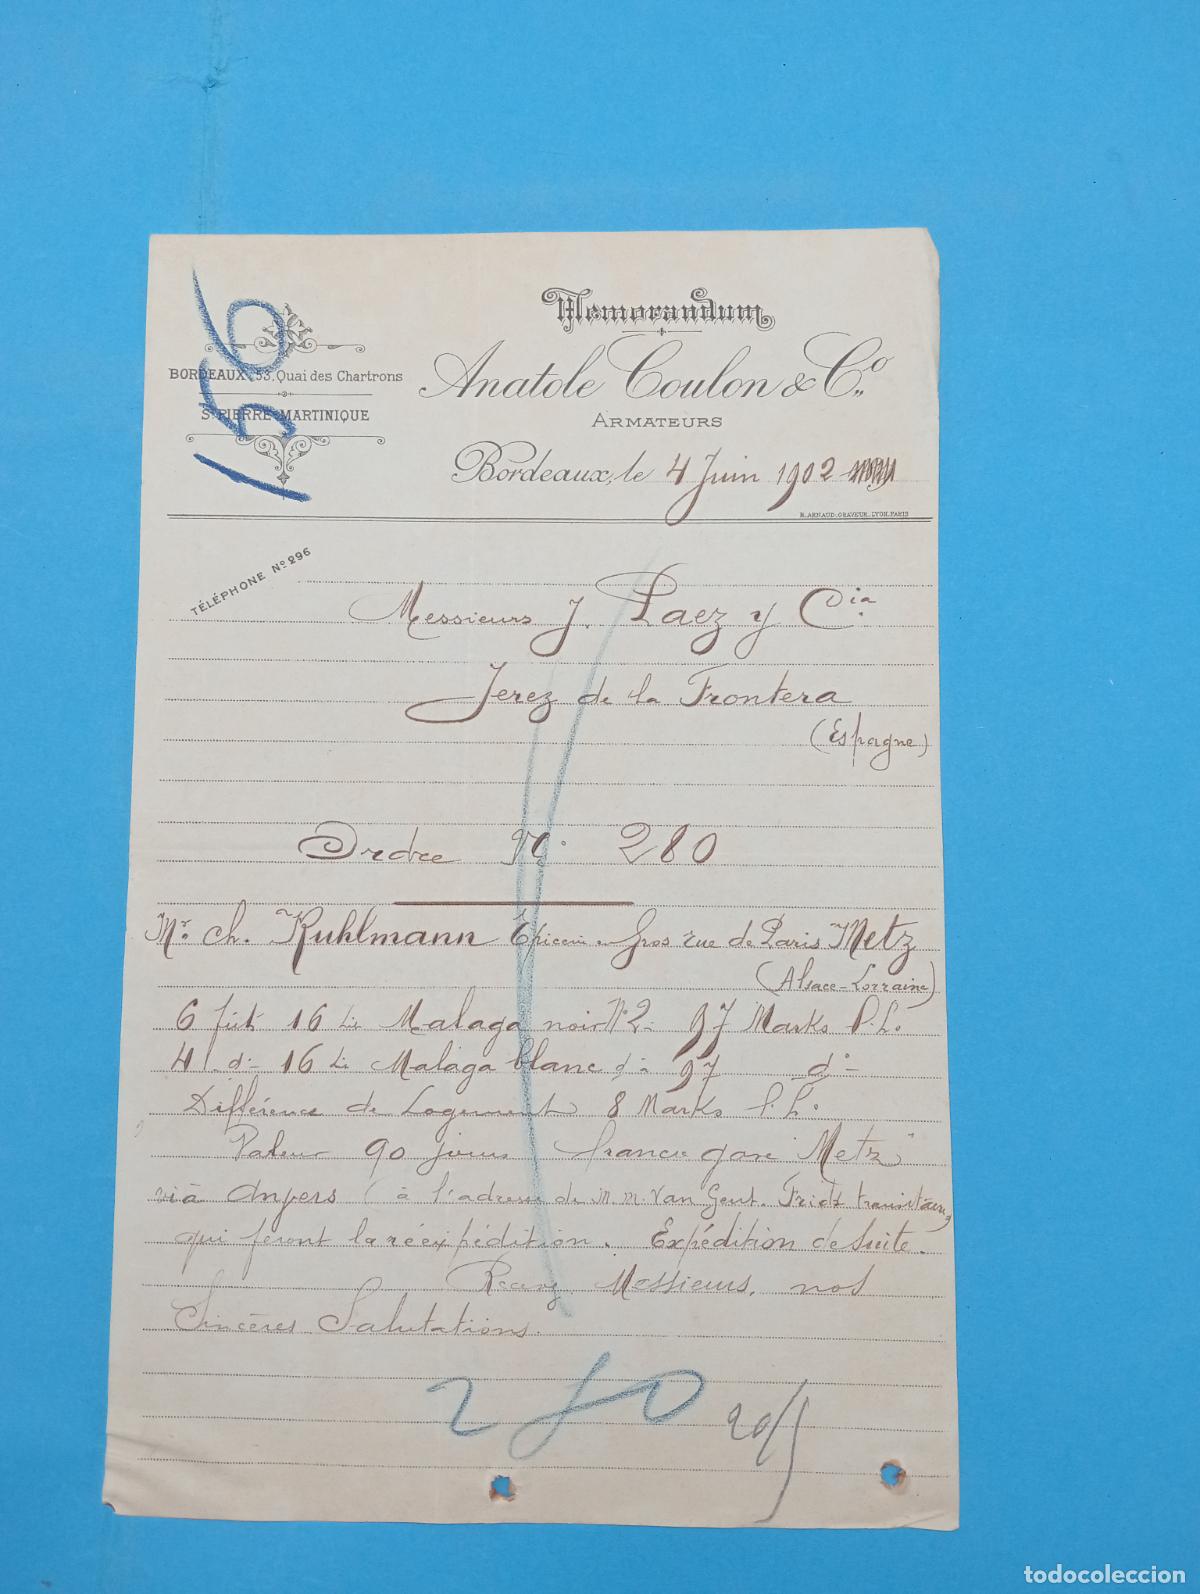 156
Memorandum
BORDEAUX, 53, Quai des Chartrons
St PIERRE-MARTINIQUE
Anatole Coulon & Co.
ARMATEURS
Bordeaux, le 4 Juin 1902
R. ARNAUD. GRAVEUR. LYON. PARIS
TÉLÉPHONE No 296
Messieurs J. Paez y Cia.
Jerez de la Frontera
(Espagne)
Ordre No. 280
Mr. Ch. Kuhlmann Epicerie en Gros rue de Paris Metz
(Alsace-Lorraine)
6 fûts 16 Li Malaga noir No 2 - 97 Marks P.L.
4 - do - 16 Li Malaga blanc do - 97 do -
Différence de Logement 8 Marks P.L.
Valeur 90 jours franco gare "Metz"
viâ Anvers (à l'adresse de M.M. Van Gent. transitaires)
qui feront la réexpédition. Expédition de suite.
Recevez, Messieurs, nos
Sincères Salutations.
280
20/5
todocoleccion